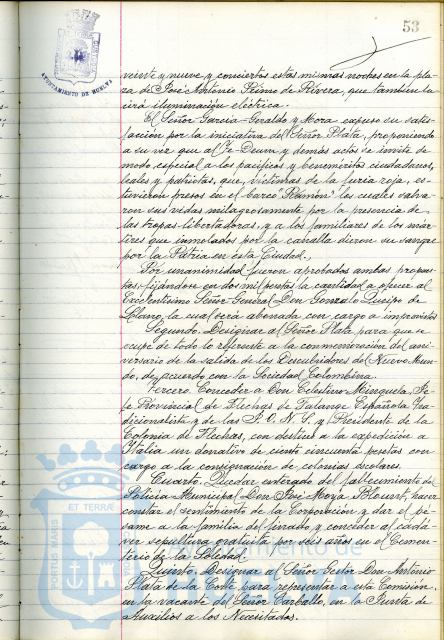 53
AYUNTAMIENTO DE HUELVA
veinte y nueve y conciertos estas mismas noches en la pla-
za de José Antonio Primo de Rivera, que tambien lu-
cirá iluminación eléctrica.
El Señor Garcia Geraldo y Mora expuso su satis-
facción por la iniciativa del Señor Plata, proponiendo
a su vez que al Te-Deum y demás actos se invite de
modo especial a los pacificos y beneméritos ciudadanos,
leales y patriotas, que, victimas de la furia roja, es-
tuvieron presos en el barco "Ramón" los cuales salva-
ron sus vidas milagrosamente por la presencia de
las tropas libertadoras, y a los familiares de los már-
tires que inmolados por la canalla dieron su sangre
por la Patria en esta Ciudad.
Por unanimidad fueron aprobados ambas propues-
tas, fijándose en dos mil pesetas la cantidad a ofrecer al
Excelentisimo Señor General Don Gonzalo Queipo de
Llano, la cual será abonada con cargo a imprevistos
Segundo. Designar al Señor Plata para que se
ocupe de todo lo referente a la conmemoración del ani-
versario de la salida de los Descubridores del Nuevo Mun-
do, de acuerdo con la Sociedad Colombina.
Tercero. Conceder a Don Celestino Minguela, Je-
fe Provincial de Flechas de Falange Española Tra-
dicionalista y de las J.O.N.S. y Presidente de la
Colonia de Flechas, con destino a la expedición a
Italia un donativo de ciento cincuenta pesetas con
cargo a la consignación de colonias escolares.
Cuarto. Quedar enterado del fallecimiento del
Policia Municipal Don José Moya, hacer
constar el sentimiento de la Corporación y dar el pé-
same a la familia del finado y conceder al cadá-
ver sepultura gratuita por seis años en el Cemen-
terio de la Soledad.
Quinto. Designar al Señor Gestor Don Antonio
Plata de la Corte para representar a esta Comisión,
en la vacante del Señor Carballo, en la Junta de
Auxilios a los Necesitados.
PORTUS MARIS ET TERRAE
Ayuntamiento de